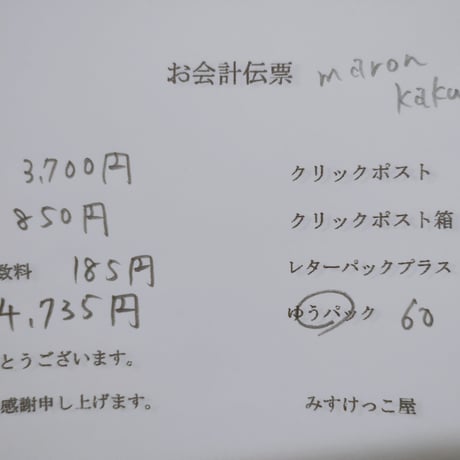 お会計伝票 maron
kaku
3,700円 クリックポスト
850円 クリックポスト箱
数料 185円 レターパックプラス
4,735円 ゆうパック 60
とうございます。
感謝申し上げます。 みすけっこ屋